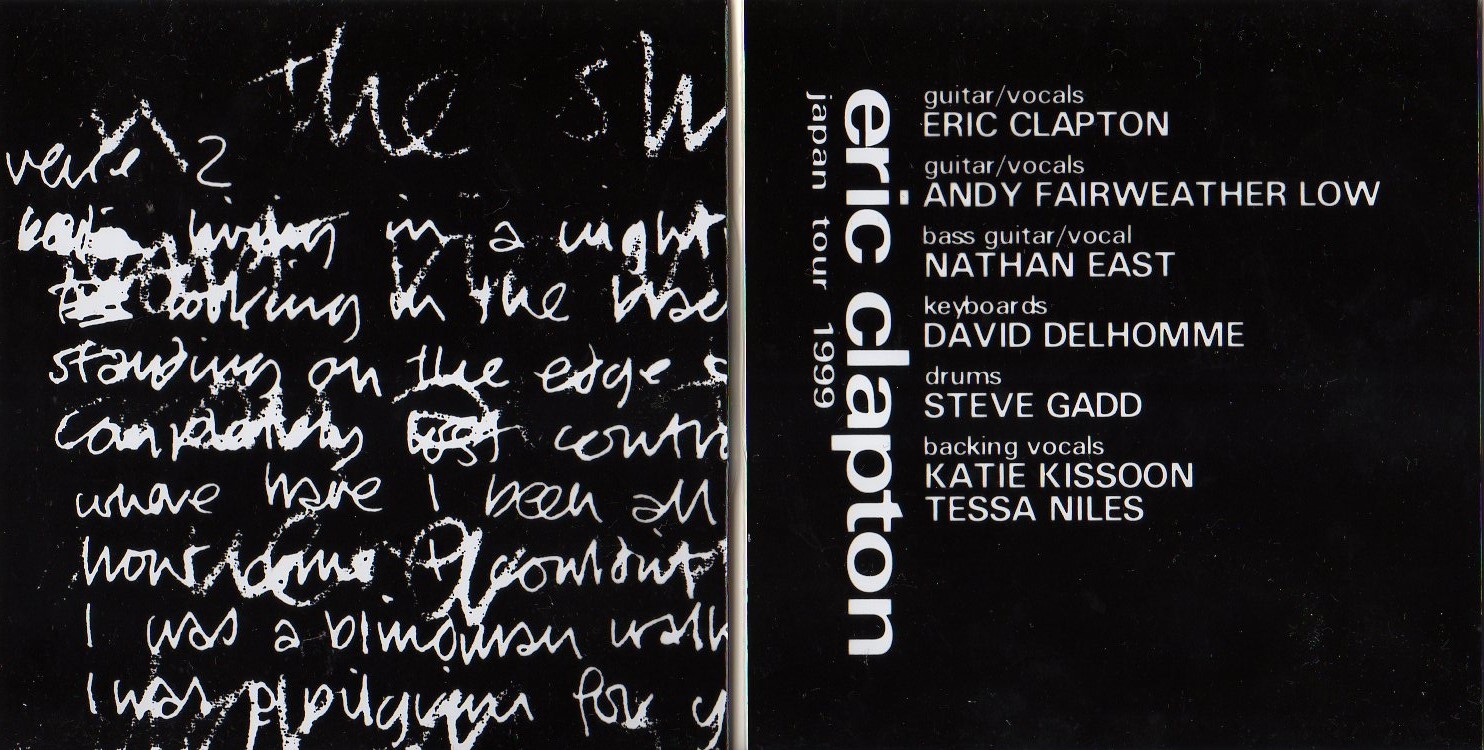 the sh
verse 2
living in a night
looking in the
standing on the edge
completely lost contr
where have I been all
how come I couldn't
I was a blind man walk
I was a pilgrim for y
eric clapton
japan tour 1999
guitar/vocals
ERIC CLAPTON
guitar/vocals
ANDY FAIRWEATHER LOW
bass guitar/vocal
NATHAN EAST
keyboards
DAVID DELHOMME
drums
STEVE GADD
backing vocals
KATIE KISSOON
TESSA NILES